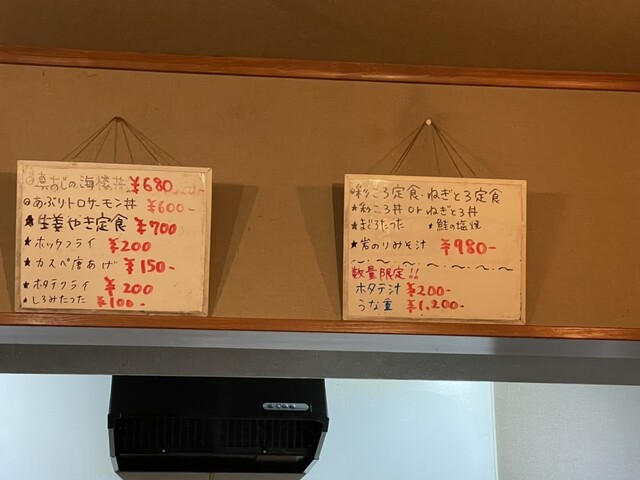 真あじの海鮮丼 ¥680
あぶりトロサーモン丼 ¥600-
★生姜やき定食 ¥700
★ホックフライ ¥200
★カスベ唐あげ ¥150-
★ホタテフライ ¥200
★しろみたつた ¥100-
彩ころ定食・ねぎとろ定食
★彩ころ丼 orねぎとろ丼
★まぐろたつた ★鮭の塩焼
★岩のりみそ汁 ¥980-
数量限定!!
ホタテ汁 ¥200-
うな重 ¥1,200-